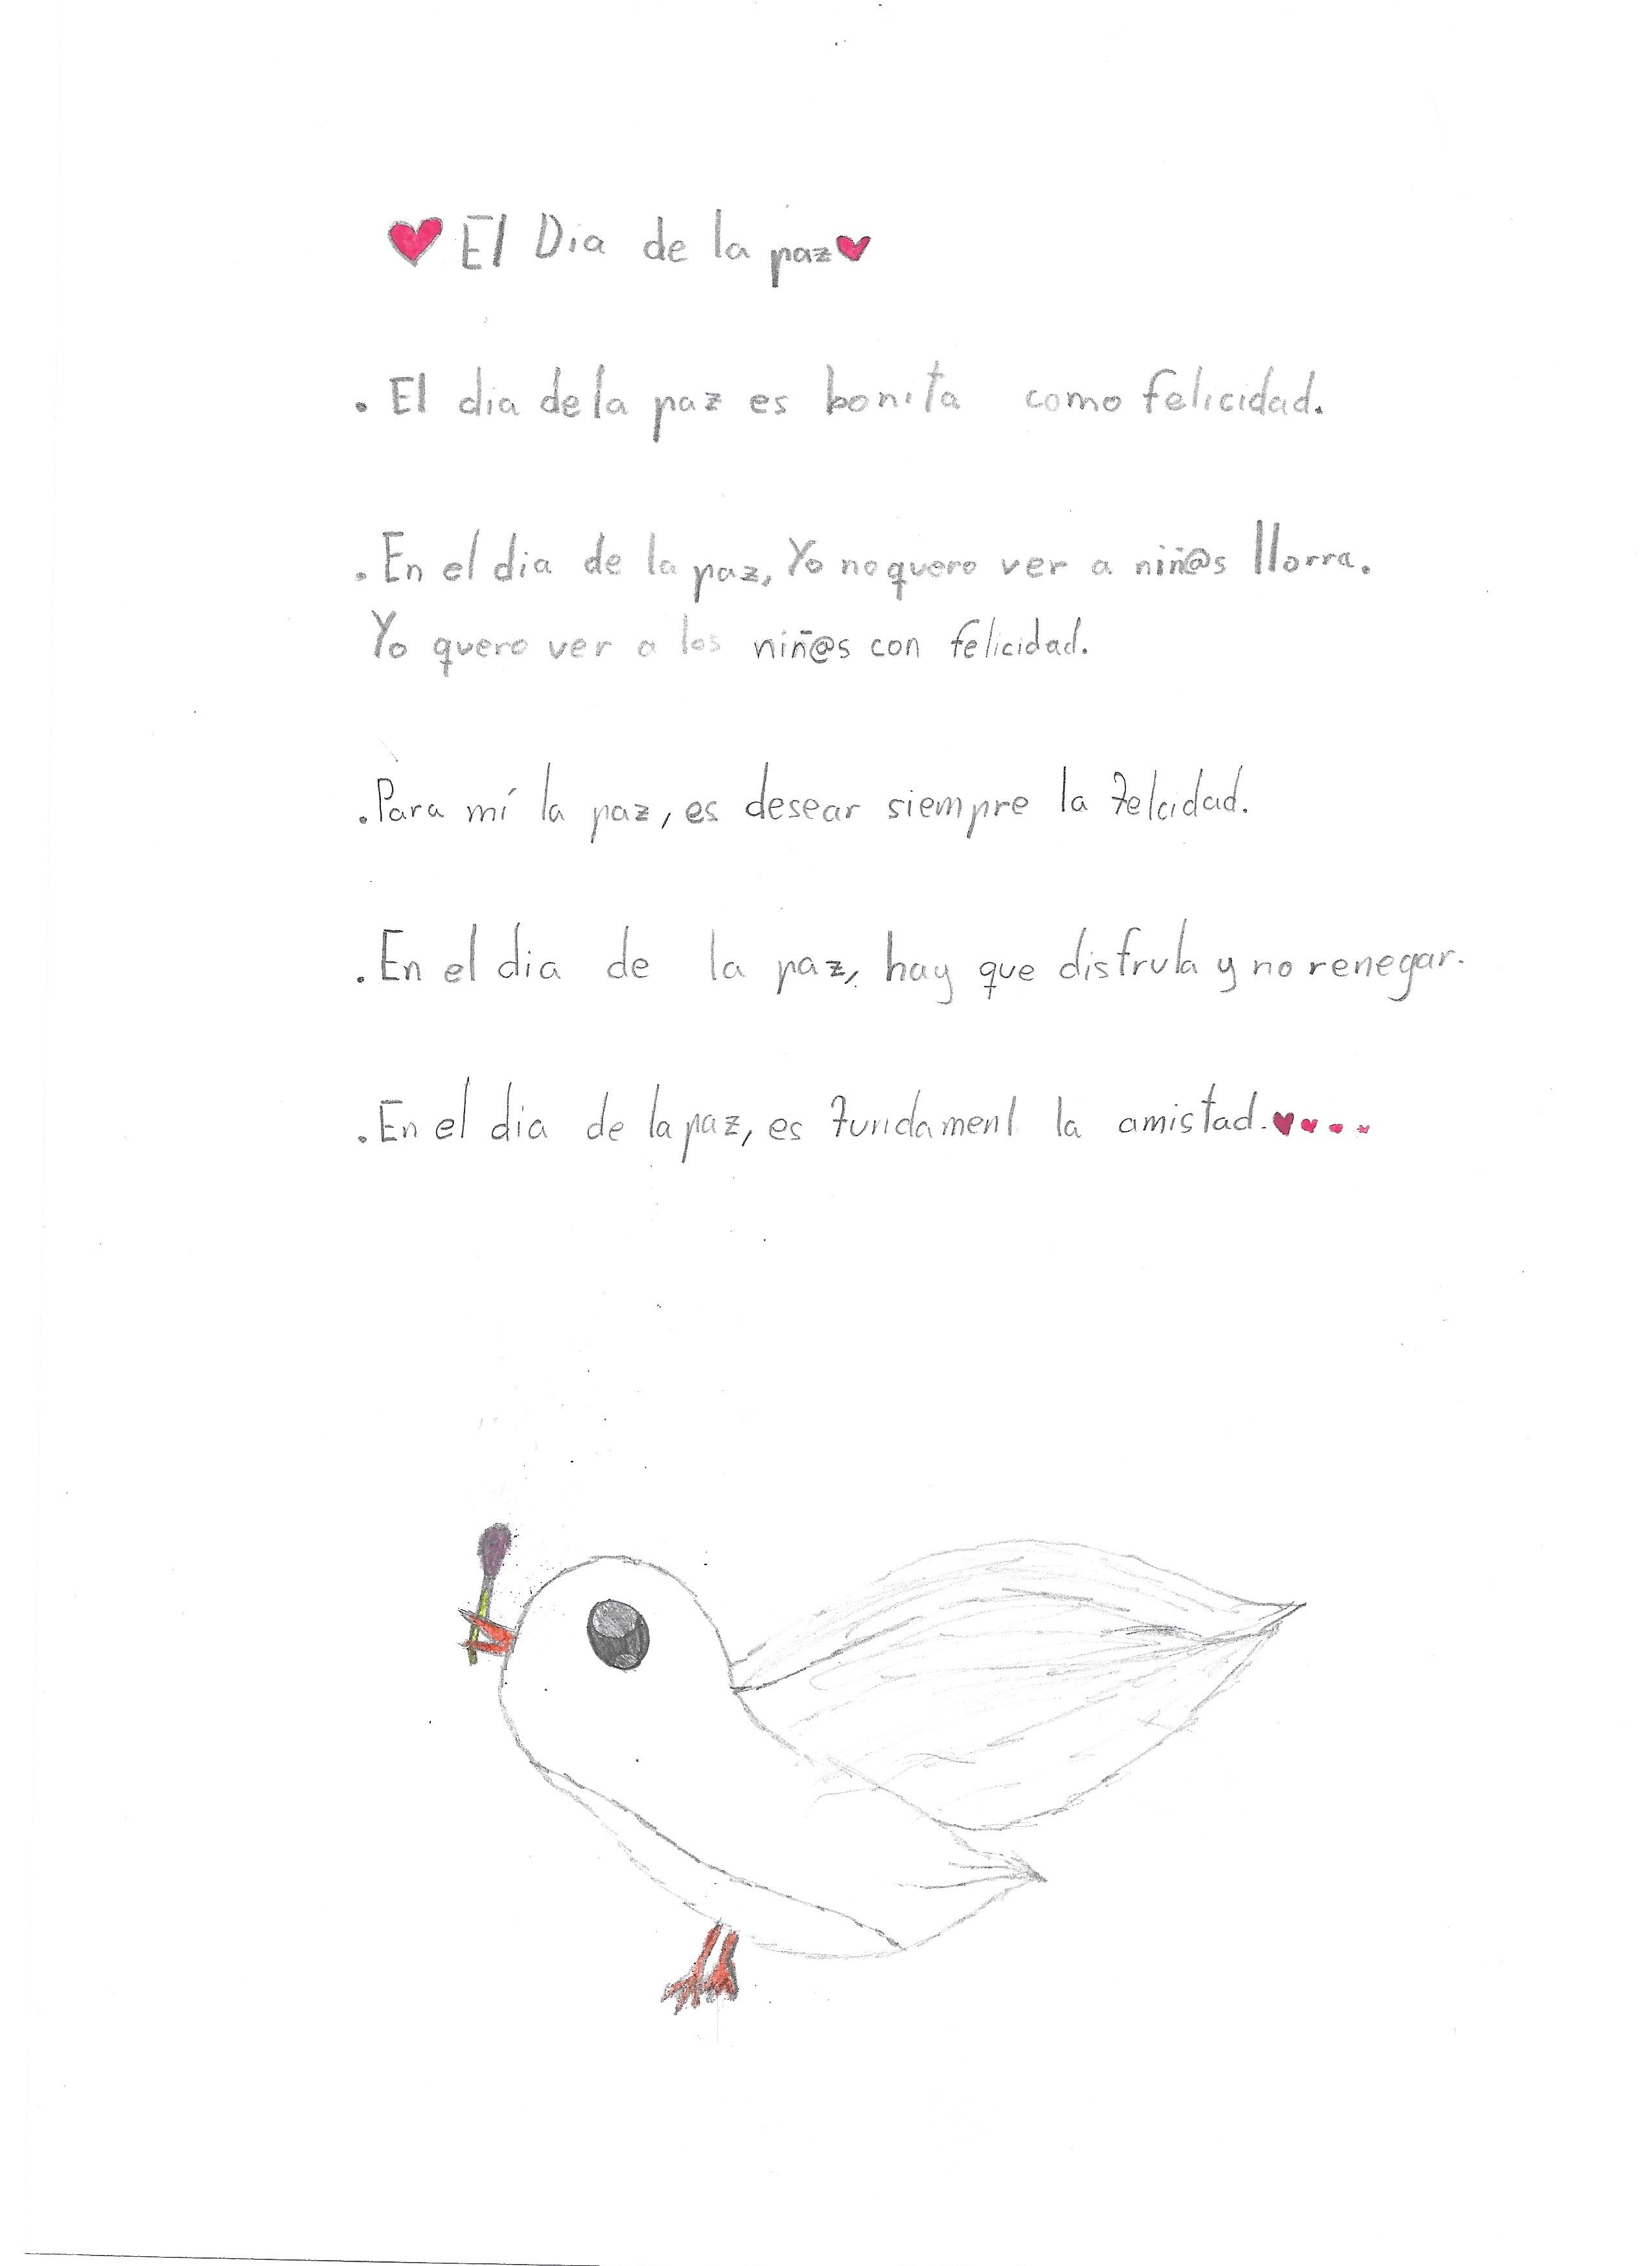 El Dia de la paz
. El dia de la paz es bonita como felicidad.
. En el dia de la paz, Yo no quero ver a niñ@s llorra.
Yo quero ver a los niñ@s con felicidad.
. Para mí la paz, es desear siempre la felcidad.
. En el dia de la paz, hay que disfruta y no renegar.
. En el dia de la paz, es fundament la amistad.